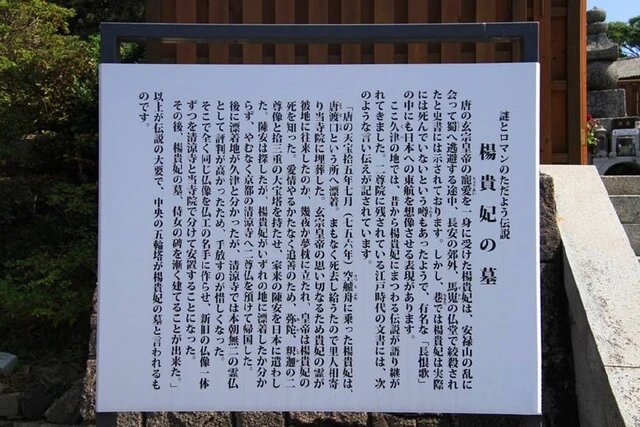 謎とロマンのただよう伝説
楊貴妃の墓
唐の玄宗皇帝の寵愛を一身に受けた楊貴妃は、安禄山の乱に
会って蜀へ逃避する途中、長安の郊外、馬嵬の仏堂で絞殺され
たと史書には示されております。しかし、巷では楊貴妃は実際
には死んでいないという噂もあったようで、有名な「長恨歌」
の中にも日本への東航を想像させる表現があります。
ここ久津の地では、昔から楊貴妃にまつわる伝説が語り継が
れてきました。二尊院に残されている江戸時代の文書には、次
のような言い伝えが記されています。
「唐の天宝拾五年七月(七五六年)空艫舟に乗った楊貴妃は、
唐渡口という所へ漂着。まもなく死去し給うたので里人相寄
り当寺院に埋葬した。玄宗皇帝の思い切なるため貴妃の霊が
彼地に往来したのか、幾夜か夢枕に立たれ、皇帝は楊貴妃の
死を知った。愛情やるかたなく追善のため、弥陀、釈迦の二
尊像と拾三重の大宝塔を持たせ、家来の陳安を日本に遣わし
た。陳安は探したが、楊貴妃がいずれの地に漂着したか分か
らず、やむなく京都の清涼寺へ二尊仏を預けて帰国した。
後に漂着地が久津と分かったが、清涼寺では本朝無二の霊仏
として評判が高かったため、手放すのが惜しくなった。
そこで全く同じ仏像を仏工の名手に作らせ、新旧の仏像一体
ずつを清涼寺と当寺院で分けて安置することになった。
その後、楊貴妃の墓、侍女の碑を漸く建てることが出来た。」
以上が伝説の大要で、中央の五輪塔が楊貴妃の墓と言われるも
のです。